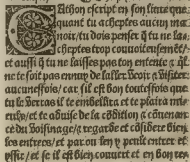 CAthon escript en son liure que
quant tu acheptes aucun ma
noir / tu dois penser q̃ tu ne la
cheptes trop conuoiteusemẽt / et
et aussi q̃ tu ne laisses pas ton entente / q̃ il
ne te soit pas ennuy de laller veoir et visiter
aucuneffois / car sil est bon toutesfois que
tu le verras il te embellira et te plaira mieulx
et te aduise de la cõdition &
du voisinage / & regarde et cõsidere bien
les entrees / et par ou sen y
et se il est bien couuert et en bon